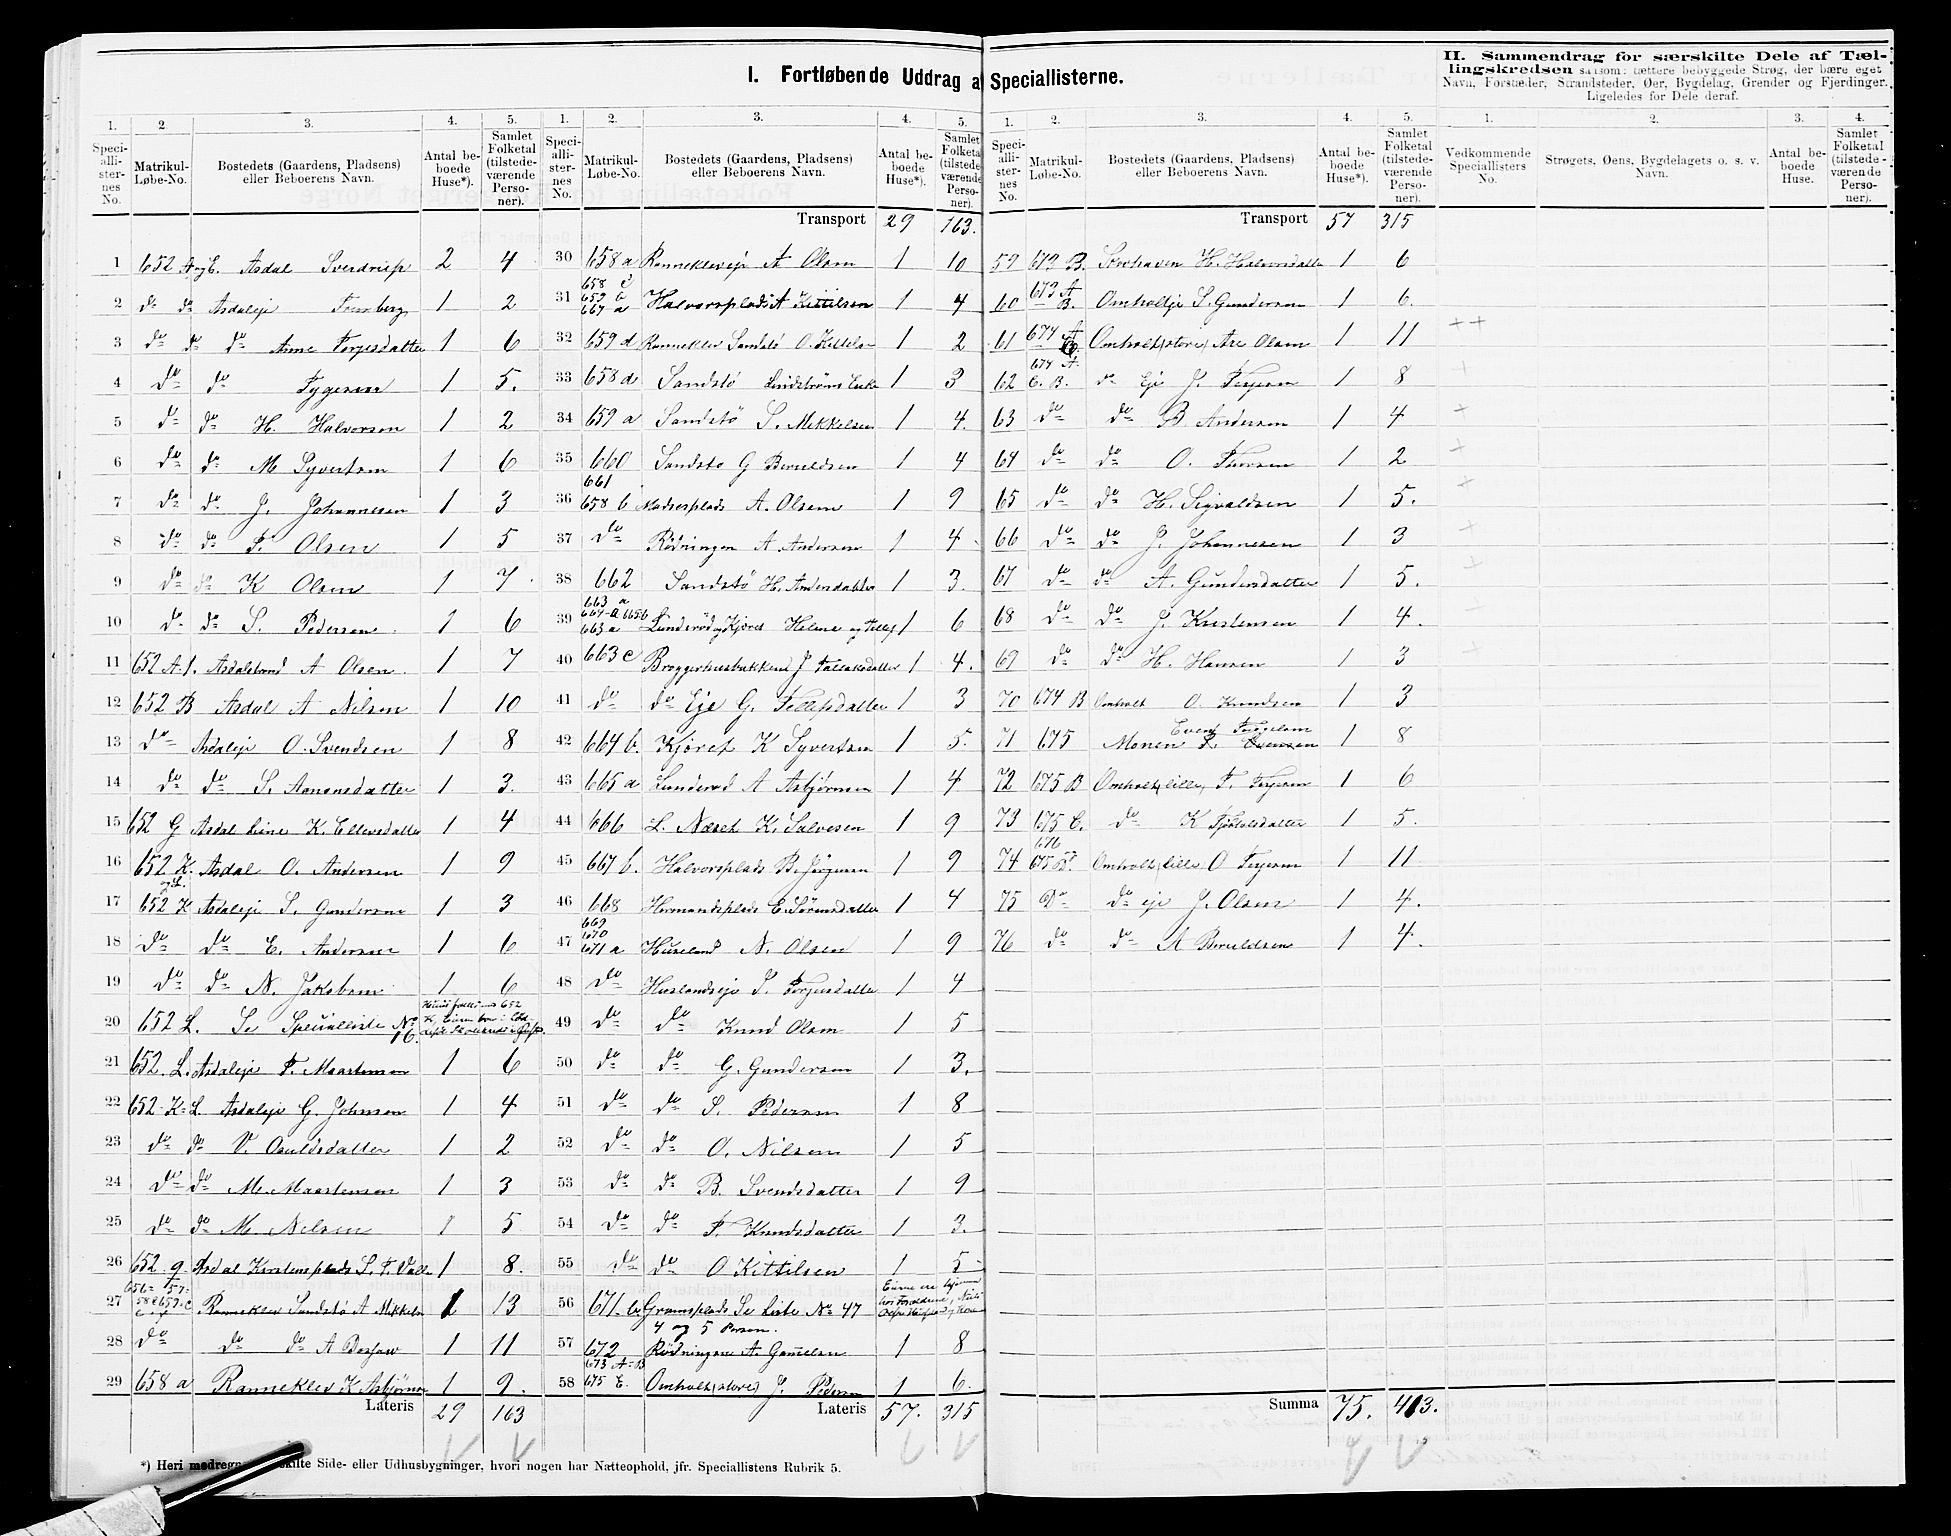 I. Fortløbende Uddrag af Speciallisterne.
II. Sammendrag for særskilte Dele af Tæl-
lingskredsen saasom: tættere bebyggede Strøg, der bære eget
Navn, Forstæder, Strandsteder, Øer, Bygdelag, Grender og Fjerdinger.
Ligeledes for Dele deraf.
1. 2. 3. 4. 5.
Speciallisternes No. Matrikul-Løbe-No. Bostedets (Gaardens, Pladsens) eller Beboerens Navn. Antal beboede Huse*). Samlet Folketal (tilstedeværende Personer).
1 652 A og C. Asdal Sverdrup 2 4
2 do do Asdaleje 1 2
3 do do do Anne Torjesdatter 1 6
4 do do Tygesen 1 5.
5 do do H. Halvorsen 1 2
6 do do M Syvertsen 1 6
7 do do J. Johannesen 1 3
8 do do T. Olsen 1 5
9 do do K Olsen 1 7.
10 do do S. Pedersen 1 6
11 652 A.1. Asdalstrand A Olsen 1 7
12 652 B Asdal A Nilsen 1 10
13 do Asdaleje O. Svendsen 1 8
14 do do S. Aanonsdatter 1 3.
15 652 G Asdal K. Ellevsdatter 1 4
16 652 K. og L. Asdal O. Andersen 1 9
17 652 K Asdaleje S. Gundersen 1 3
18 do do E. Andersen 1 6
19 do do N. Jakobsen 1 6
20 652 L. Se Specialliste No 16.
21 652. L. Asdaleje T. Maartensen 1 6
22 652 K= L. Asdaleje G. Johnsen 1 4
23 do do V. Osuldsdatter 1 2
24 do do M. Maartensen 1 3
25 do do M. Nilsen 1 5
26 652 g. Asdal Kirstensplads S. T. 1 8.
27 Ranneklev Sandstø A Mikkels 1 13
28 do do do A 1 11
29 658 a Ranneklev K Asbjørnsen 1 9.
Lateris 29 163
1. 2. 3. 4. 5.
Speciallisternes No. Matrikul-Løbe-No. Bostedets (Gaardens, Pladsens) eller Beboerens Navn. Antal beboede Huse*). Samlet Folketal (tilstedeværende Personer).
Transport 29 163.
30 658 a Rannekleveje A Olsen 1 10
31 658 c 659 b 667 a Halvorsplads A Kittilsen 1 4
32 659 d Ranneklev Sandstø O. Kittelsen 1 2
33 658 d Sandstø Lindstrøms Enke 1 3
34 659 a Sandstø S. Mikkelsen 1 4.
35 660 Sandstø G Beruldsen 1 4
36 661 658 b Madsesplads A. Olsen 1 9
37 do Rødningen A. Andersen 1 4
38 662 Sandstø H. Andersdatter 1 3.
39 663 a Lunderød og Kjøret Helene og 1 6
40 663 c Bryggerhusbakken J Tallaksdatter 1 4.
41 do do Eje G. Tellefsdatter 1 3
42 664 b. Kjøret K Syvertsen 1 5.
43 665 a Lunderød A Asbjørnsen 1 4
44 666 L. Næset K. Salvesen 1 9
45 667 b. Halvorsplads B. Jørgensen 1 9
46 668 Hermandsplads E. Sørensdatter 1 4
47 669 670 671 a Huseland N. Olsen 1 9
48 do Huslandseje T. Torjusdatter 1 4
49 do do Knud Olsen 1 5
50 do do G. Gundersen 1 3.
51 do do S. Pedersen 1 8
52 do do O. Nilsen 1 5
53 do do B. Svendsdatter 1 9
54 do do T. Knudsdatter 1 3.
55 do do O Kittilsen 1 5
56 671. b Gramsplads Se Liste No 47
4 og 5 Person.
57 672 Rødningen A. Gamelsen 1 8
58 673 A=B 675 E. Omholt (store) J. Pedersen 1 6.
Lateris 57. 315
1. 2. 3. 4. 5.
Speciallisternes No. Matrikul-Løbe-No. Bostedets (Gaardens, Pladsens) eller Beboerens Navn. Antal beboede Huse*). Samlet Folketal (tilstedeværende Personer).
Transport 57 315
59 673 B. H. Halvorsdatter 1 6
60 673 A B. Omholteje S. Gundersen 1 6.
61 674 A Omholt (store) Are Olsen 1 11
62 674 A. C. B. do Eje J. Terjesen 1 8
63 do do B Andersen 1 4
64 do do O. Thorsen 1 2
65 do do H. Sigvaldsen 1 5.
66 do do J. Johannesen 1 3
67 do do A. Gundersdatter 1 5.
68 do do J. Kristensen 1 4.
69 do do H. Hansen 1 3
70 674 B Omholt O. Knudsen 1 3
71 675 Monen Evensen 1 8
72 675 B Omholt (lille) T. Terjesen 1 6
73 675 C. do K Tjøstolsdatter 1 5.
74 676 675 B Omholt (lille) O Terjesen 1 11
75 Do do eje J. Olsen 1 4.
76 do do A Beruldsen 1 4.
Summa 75. 413.
1. 2. 3. 4.
Vedkommende Speciallisters No. Strøgets, Øens, Bygdelagets o. s. v. Navn. Antal beboede Huse. Samlet Folketal (tilstedeværende Personer).
*) Heri medregnes særskilte Side- eller Udhusbygninger, hvori nogen har Natteophold, jfr. Speciallistens Rubrik 5.